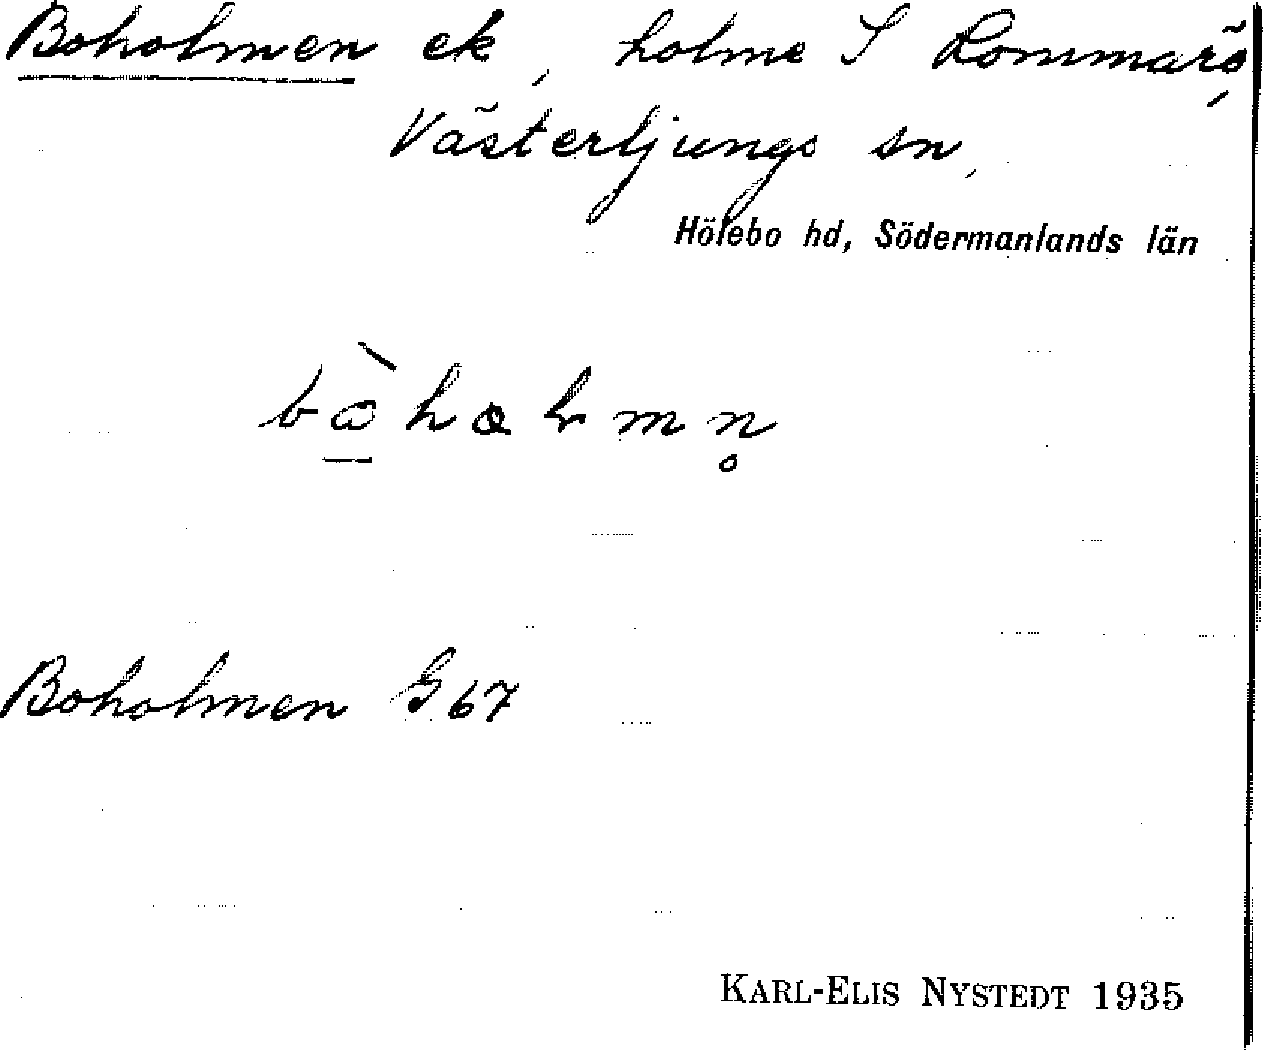 Boholmen ek, holme S Lommarö,
Västerljungs sn,
Hölebo hd, Södermanlands län
Boholmen G 67
KARL-ELIS NYSTEDT 1935